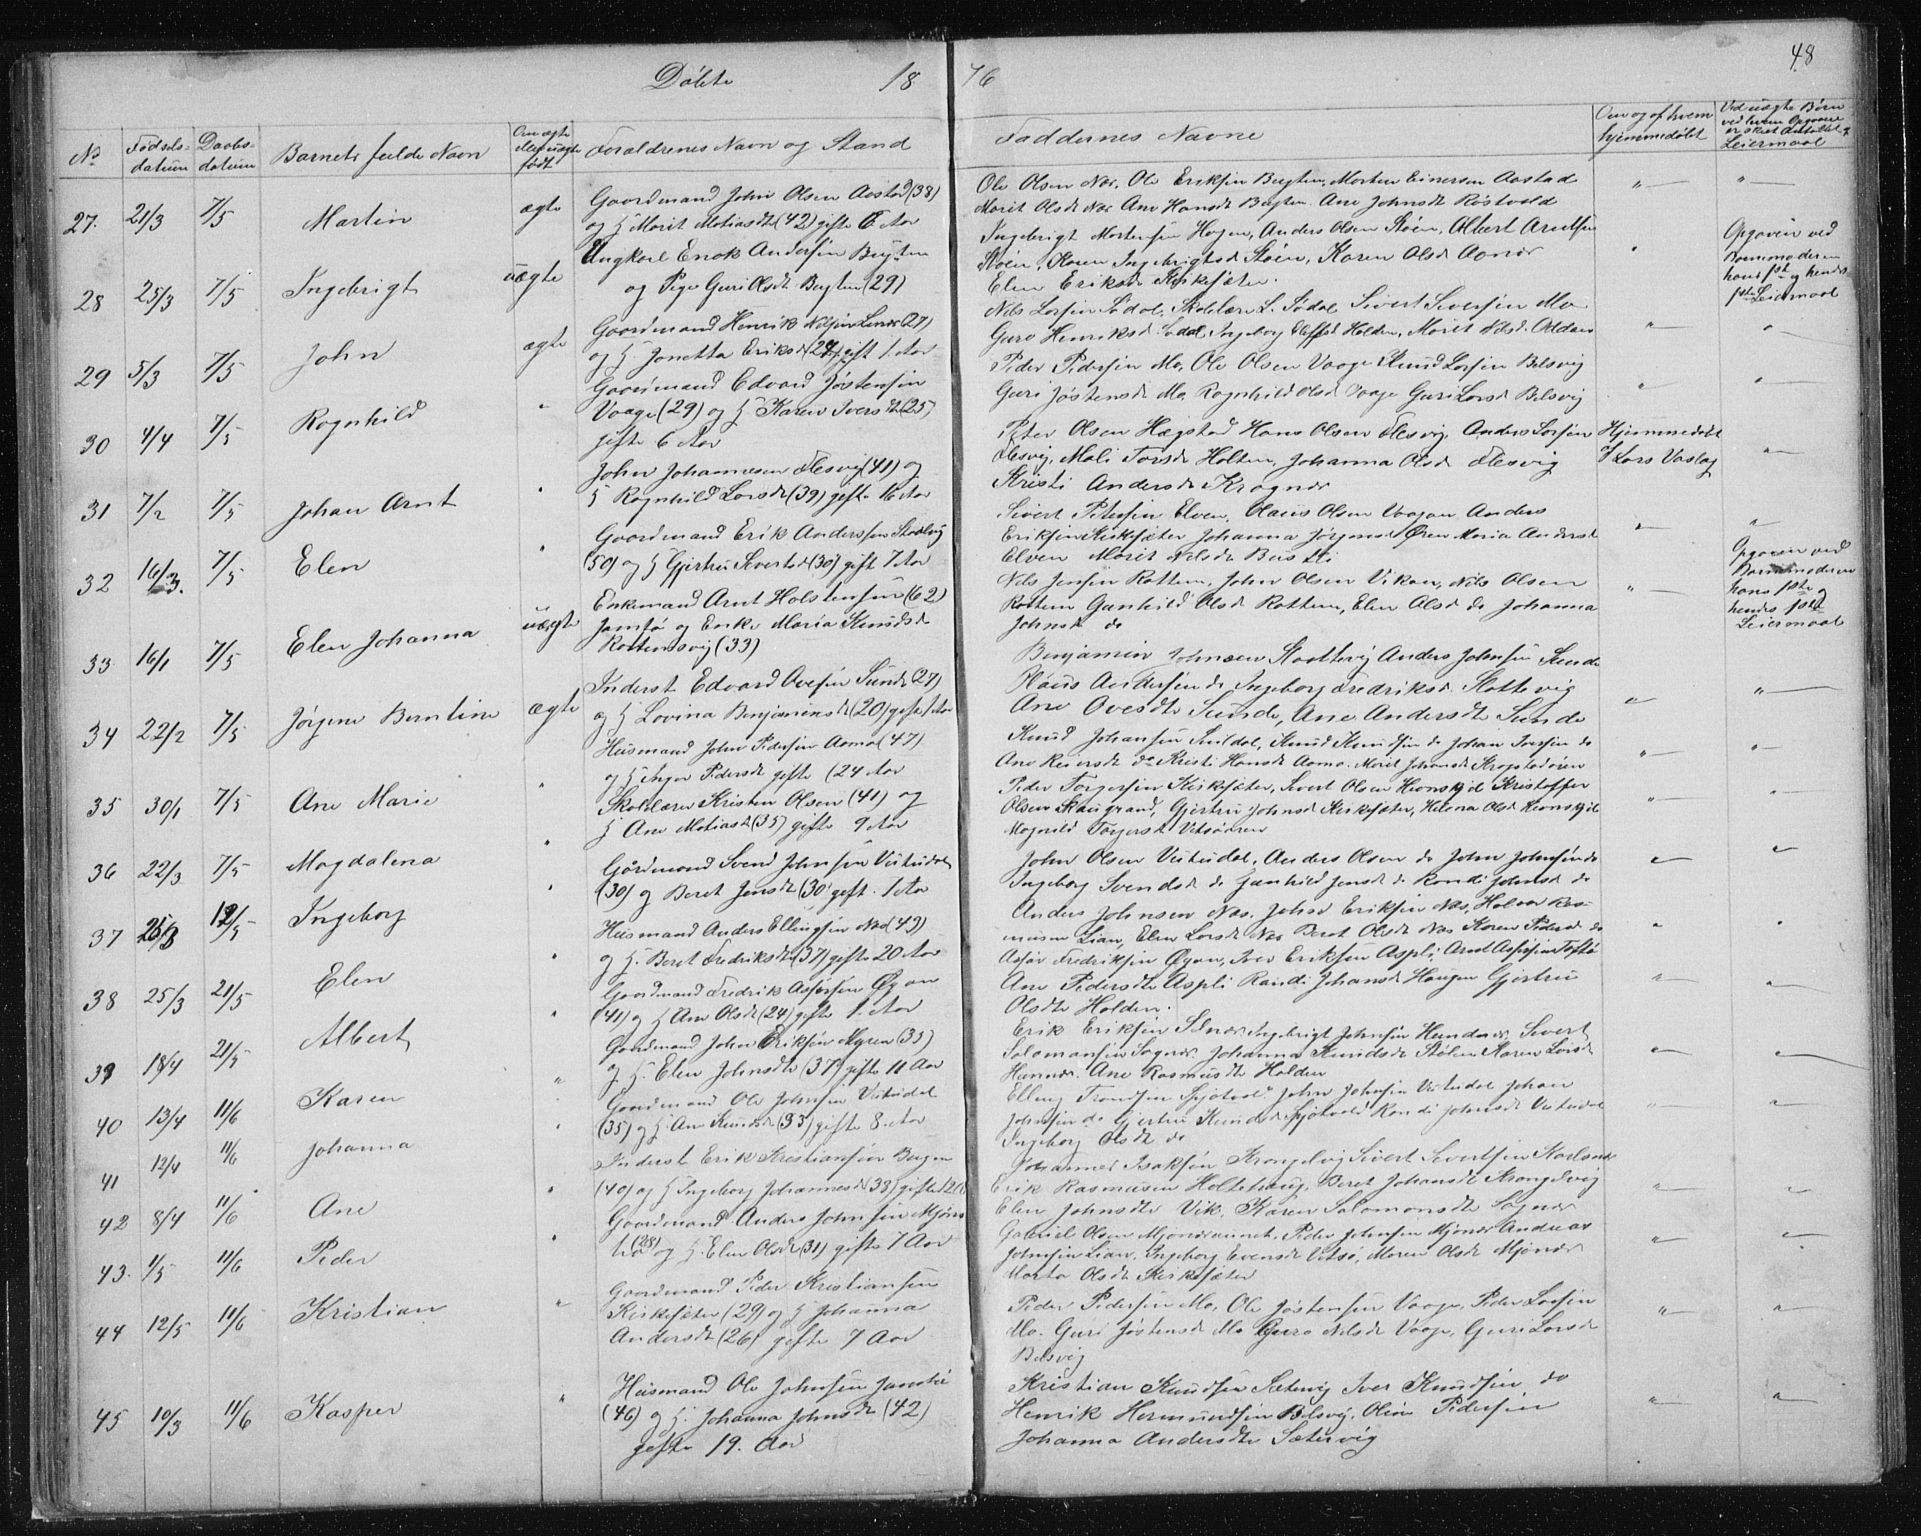 Døbte 18 76 48
No Fødselsdatum Daabsdatum Barnets fulde Navn Om ægte eller uægte født Forældrenes Navn og Stand Faddernes Navne Om og af hvem hjemmedøbt Ved uægte Børn ved hvem Opgaven er skeet Antallet af Leiermaal
27. 21/3 7/5 Martin ægte Gaardmand John Olsen Aastad (38)
og H Marit Matiasdt (42) gifte 6 Aar
Ole Olsen Næs, Ole Eriksen Bugten, Morten Einersen Aastad
Marit Olsdt Næs Ane Hansdt Bugten. Ane Johnsdt Røsvold
28 25/3 7/5 Ingebrigt uægte Ungkarl Enok Andersen Bugten
og Pige Guri Olsdt Bugten (29)
Ingebrigt Mortensen Hagen, Anders Olsen Støen, Albert Arntsen
Støen, Karen Ingebrigtsd Støen, Karen Olsd
Elen Eriksd Kirksæter.
Opgaven ved
Barnemoderen
hans 1ste og hendes
1ste Leiermaal
29 5/3 7/5 John ægte Gaardmand Henrik Nilsen (27)
og H. Jonetta Eriksd gift 1. Aar
Nils Larsen Sødal, Skolelærer L. Sødal Sivert Sivertsen Mo
Guro Henriksd Sødal, Ingeborg Holden, Marit Nilsd. Oddan
30 4/4 7/5 Ragnhild " Gaardmand Edvard Jøstensen
Vaage (29) og H Karen Iversdt (25)
gifte 6 Aar
Peder Pedersen Mo, Ole Olsen Vaage Knud Larsen Belsvig
Guri Jøstensd Mo, Ragnhild Olsd Vaage Guri Larsd Belsvig
31 7/2 7/5 Johan Arnt " John Johannesen Flesvig (41) og
H Ragnhild Larsdt (39) gifte 16 Aar
Peter Olsen Hægstad Hans Olsen Flesvig, Anders Larsen
Flesvig, Mali Larsd Holten, Johanna Olsd Flesvig
Kristi Andersd Kragnæs
Hjemmedøbt
Lars Vaslag
32 16/3. 7/5 Elen " Gaardmand Erik Anderssen
(50) og H Gjertru Sivertsd (30) gift 7 Aar
Sivert Petersen Elven, Claus Olsen Vaagan, Anders
Eriksen Kirksæter Johanna Jørgensd Øren Maria Andersd
Elven Marit Nilsdt
33 16/1 7/5 Elen Johanna uægte Enkemand Arnt Holstensen (62)
Jamtø og Enke Maria Knudsd
Rottemsvig (33)
Nils Jensen Rottem, John Olsen Vikan, Nils Olsen
Rottem Gunhild Olsd Rottem, Elen Olsd do Johanna
Johnsd do
Opgaven ved
Barnemoderen
hans 1ste og
hendes 1ste
Leiermaal
34 22/2 7/5 Jørgine Berntine ægte Inderst Edvard Ovesen Sunde (27)
og H Lovina Benjaminsd (20) gifte 1 Aar
Benjamin Johnsen Slottevig Anders Johnsen Sunde
Klaus Andersen do Ingeborg Fredriksd. Slottevig
Ane Ovesdt Sunde, Ane Andersdt Sunde
35 30/1 7/5 Ane Marie " Husmand John Pedersen Aamo (47)
og H Inger Pedersdt gifte (24 Aar
Knud Johansen Suldal, Knud Knudsen do Johan Iversen do
Ane Reiersdt do Kristi Hansdt Aamo. Marit Johansdt Krogstadøren
36 22/3 7/5 Magdalena " Skolelærer Kristen Olsen (41) og
H Ane Matiasd (35) gifte 9 Aar
Peder Torgersen Kirksæter, Sivert Olsen Hionskjel Kristoffer
Olsen Skaugrand, Gjertru Johnsd Kirksæter, Helena Olsd Hionskjel
Magnild Torgersdt Vitsøøren
37 25/3 12/5 Ingeborg " Gårdmand Svend Johnsen Vutudal
(30) og Beret Jensdt (30) gift 1 Aar
John Olsen Vutudal, Anders Olsen do John Johnsen do
Ingeborg Svendsd do Gunhild Jensd do Randi Johnsd do
38 25/3 21/5 Elen " Husmand Anders Ellingsen Næs (49)
og H. Beret Fredriksdt (37) gifte 20 Aar
Anders Johnsen Næs, John Eriksen Næs, Halvor Rasmusen
Lian, Elen Larsdt Næs Beret Olsdt Næs Karen Pedersd do
39 18/4 21/5 Albert " Gaardmand Fredrik Assersen Øyan
(41) og H Ane Olsdt (24) gifte 1. Aar
Asser Fredriksen Øyan, Iver Eriksen Aspli, Arnt Assersen
Ane Pedersdt Aspli Randi Johansd Haugen Gjertru
Olsdt Holden.
40 13/4 11/6 Karen " Gaardmand John Eriksen Myren (35)
og H. Elen Johnsdt (37) gifte 11 Aar
Erik Eriksen Ingebrigt Johnsen Hundnes, Sivert
Salamonsen Johanna Knudsdt Støbu Karen Larsd
Hemnæ, Ane Rasmusdt Holden
41 12/4 11/6 Johanna " Gaardmand Ole Johnsen Vutudal
(35) og H. Ane Knudsdt (33) gifte 8. Aar
Elling Trondsen John Johnsen Vutudal Johan
Johnsen do Gjertru Knudsd Randi Johnsdt Vutudal
Ingeborg Olsdt do
42 8/4 11/6 Ane " Inderst Erik Kristiansen
(40) og H Ingeborg Johannesd (38) gifte 12
Johannes Isaksen Krongelvig Sivert Sivertsen
Erik Rasmusen Holtehaug, Beret Johansdt Krongelvig
Elen Johnsdt Vik, Karen Salomonsdt
43. 1/5 11/6 Peder " Gaardmand Anders Johnsen
(28) og H. Elen Olsdt (31) gifte 7 Aar
Gabriel Olsen Peder Johnsen Mjønes Andreas
Johnsen Lian, Ingeborg Evensdt Vitsø, Maren Olsdt Mjønes
Marta Olsdt Kirksæter
44 12/5 11/6 Kristian " Gaardmand Peder Kristiansen
Kirksæter (29) og H Johanna
Andersdt (26) gifte 7 Aar
Peder Pedersen Mo, Ole Jøstensen Vaage, Peder Larsen
Mo. Guri Jøstensd Mo Guro Nilsdt Vaage, Guri Larsdt
Belsvig
45 10/3 11/6 Kasper " Husmand Ole Johnsen
(46) og H. Johanna Johnsdt (42)
gifte 19. Aar
Kristian Knudsen Sætervig Iver Knudsen do
Henrik Hermundsen Belsvig, Oline Pedersen
Johanna Andersdt Sætervig